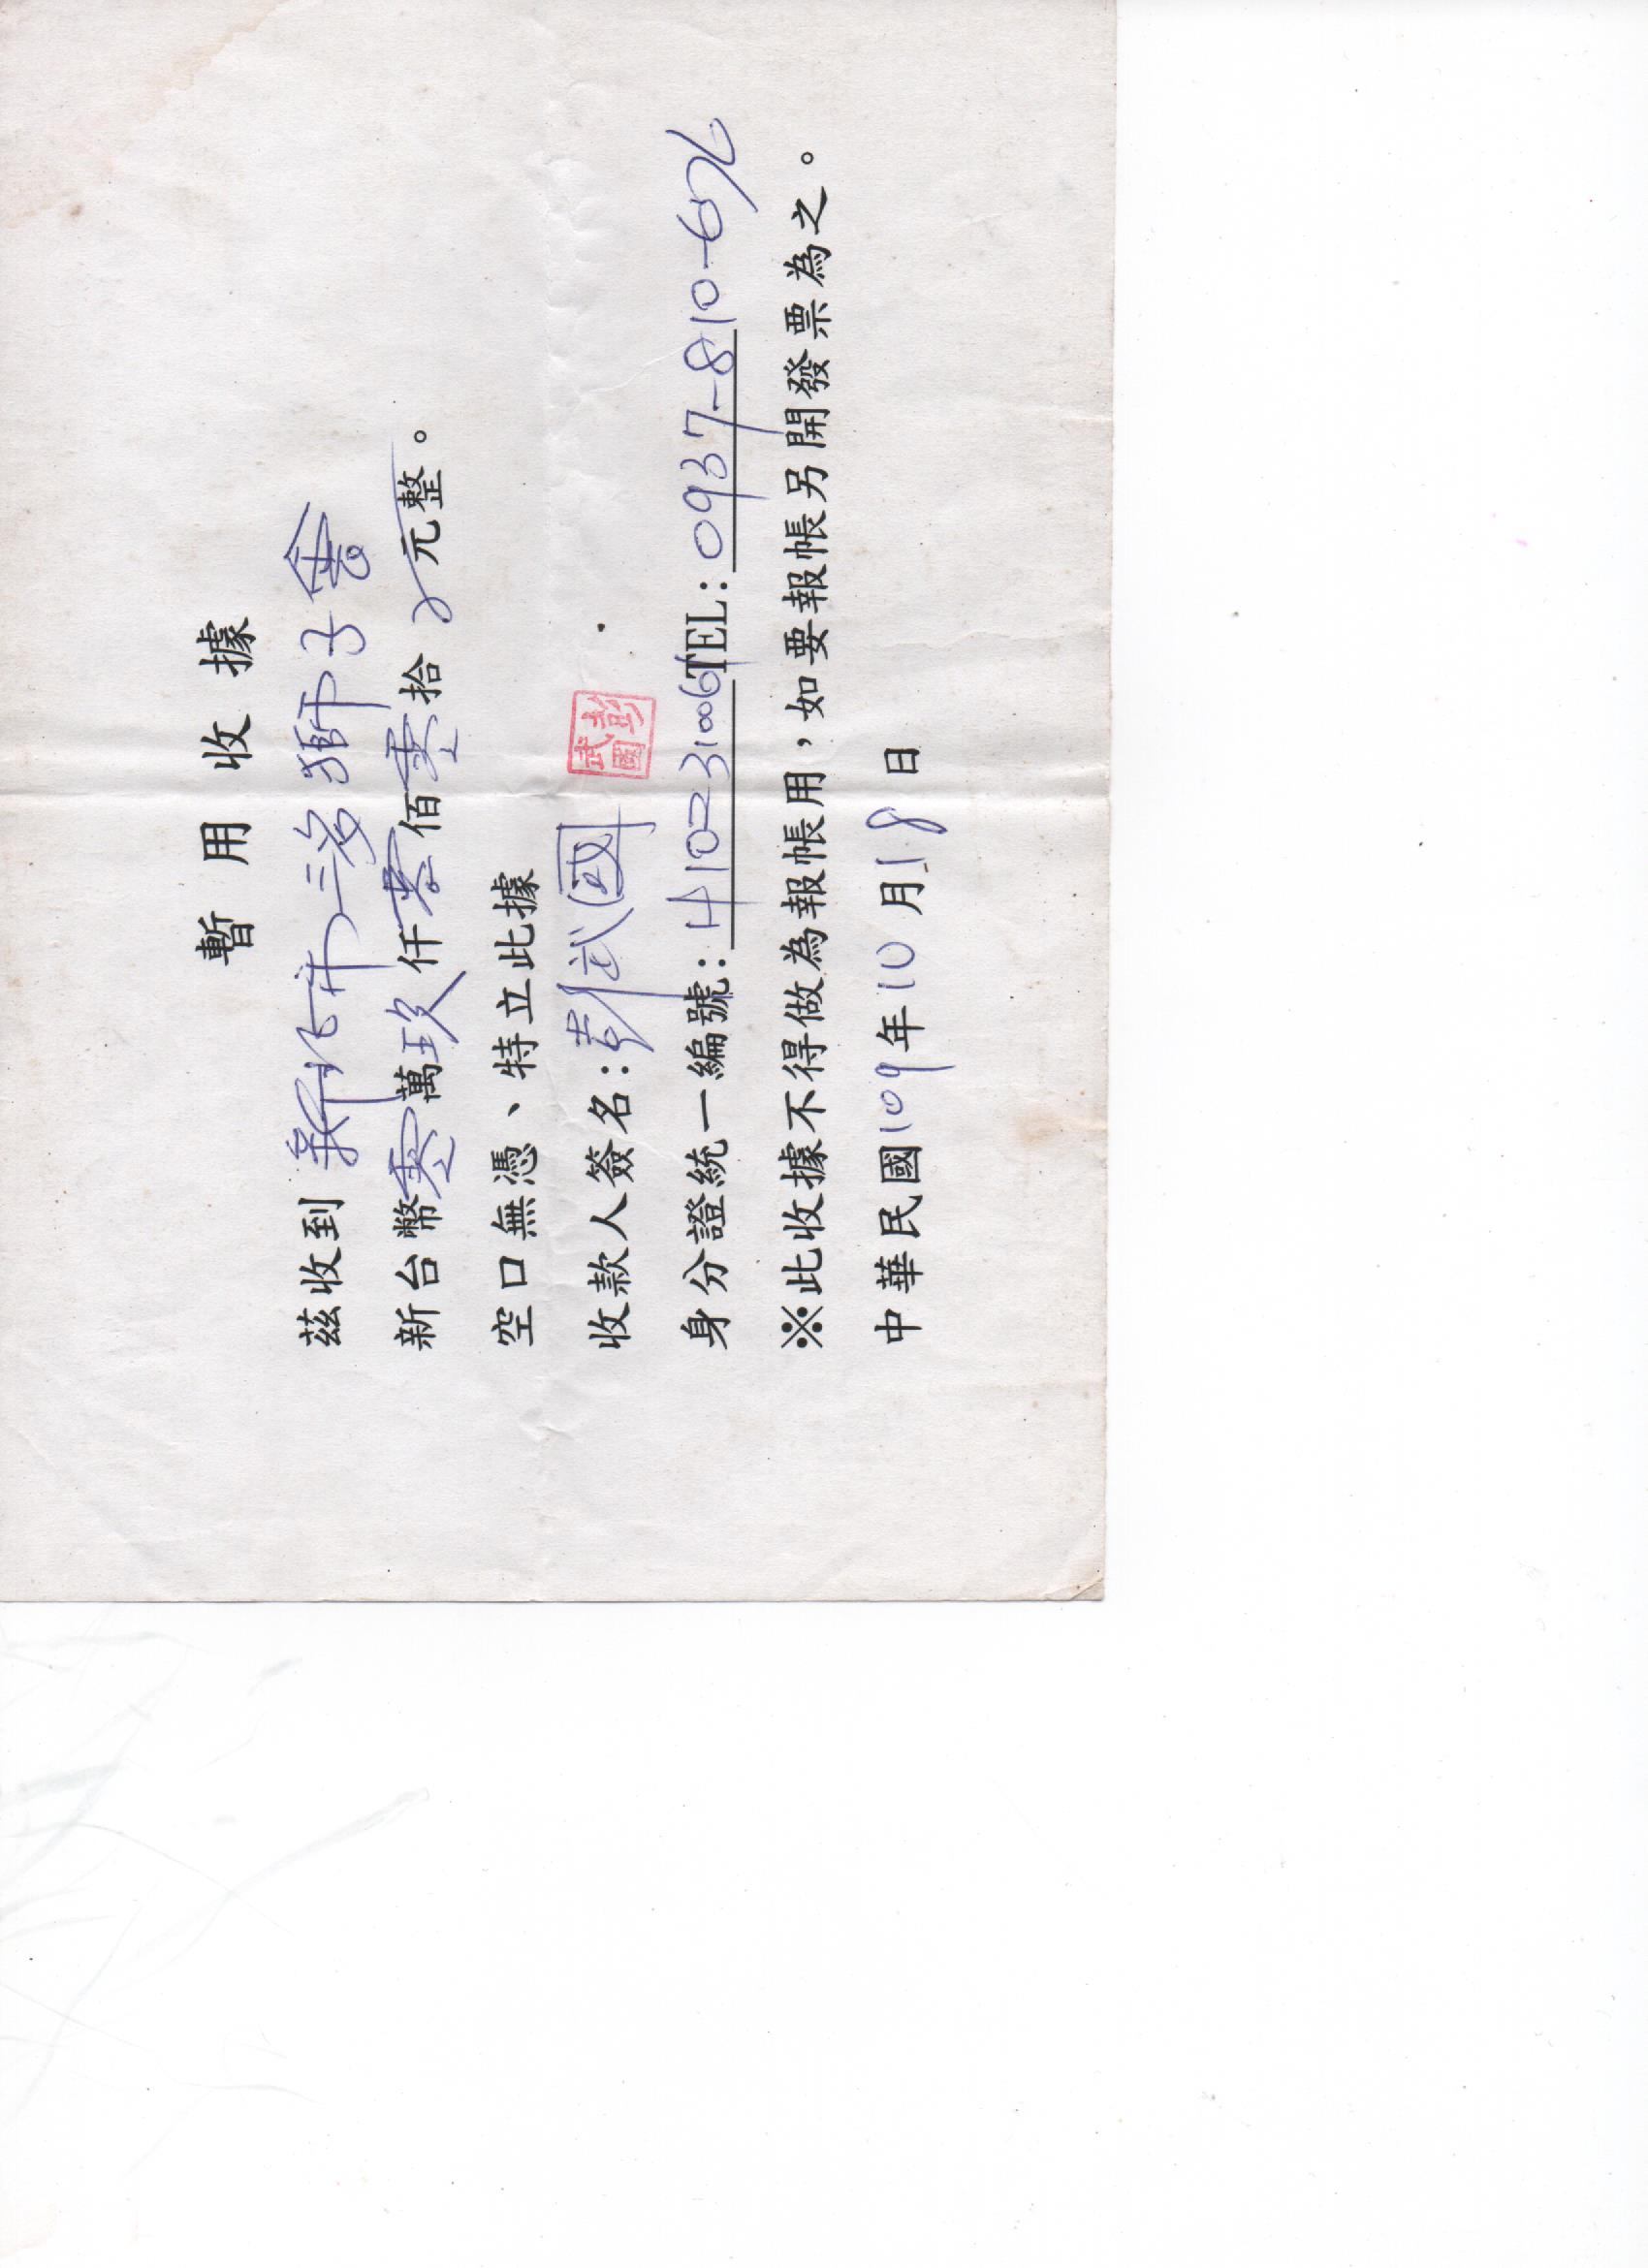 暫用收據
茲收到 新北市三洺獅子會
新台幣零萬玖仟零佰零拾元整。
空口無憑、特立此據
收款人簽名：彭武國 彭武國
身分證統一編號：H102310061 TEL：0937-810-676
※此收據不得做為報帳用，如要報帳另開發票為之。
中華民國109年10月18日